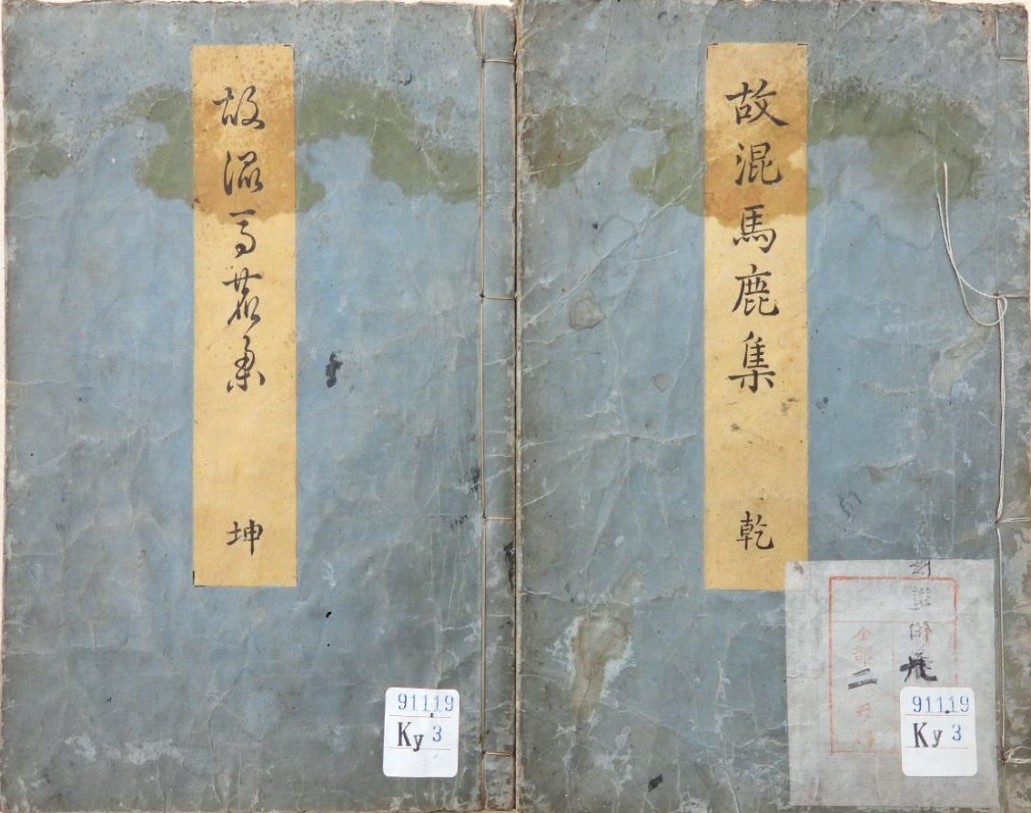 故混馬鹿集
乾
全部
二
91119
Ky 3
故混馬鹿集
坤
91119
Ky 3